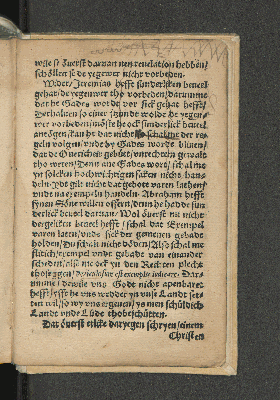 wile se överst darvan nen revelation hebben/
schöllen se de yegenwer nicht vorbeden.
Wider/Jeremias hefft sonderliken bevel
gehat/de yegenwer tho vorbeden/darumme
dat he Gades wort vor sick gehat hefft/
Derhalven so einer ythund wolde de yegen-
wer vorbeden/möste he ock sunderlick bevel
antögen/kan he dat nicht so schal me der re-
geln volgen/unde by Gades worde bliven/
dat de Overicheit gebüt/unrechtem gewalt
tho weren/Denn ane Gades wort/schal me
yn solcken hochwichtigen saken nicht han-
deln. Jdt gilt nicht dat gebott varen lathen/
unde na exempeln handeln. Abraham hefft
synen Söne willen offern/denn he hadde sun-
derlick bevel darvan. Wol överst nu nicht
dergeliken bevel hefft/schal dat Exempel
varen laten/unde sick der gemenen gebade
holden/Du schalt nicht döden/Also schal me
flitich/exempel unde gebade van einander
scheden/alse me ock yn den Rechten plecht
tho seggen/
Dar-
umme/dewile uns Godt nicht apenbaret
hefft/efft he uns wedder yn unse Landt set-
ten wil/so wy uns ergeven/ys men schüldich
Landt unde Lüde tho beschütten.
Dat överst etlike daryegen schryen/einem
Christen